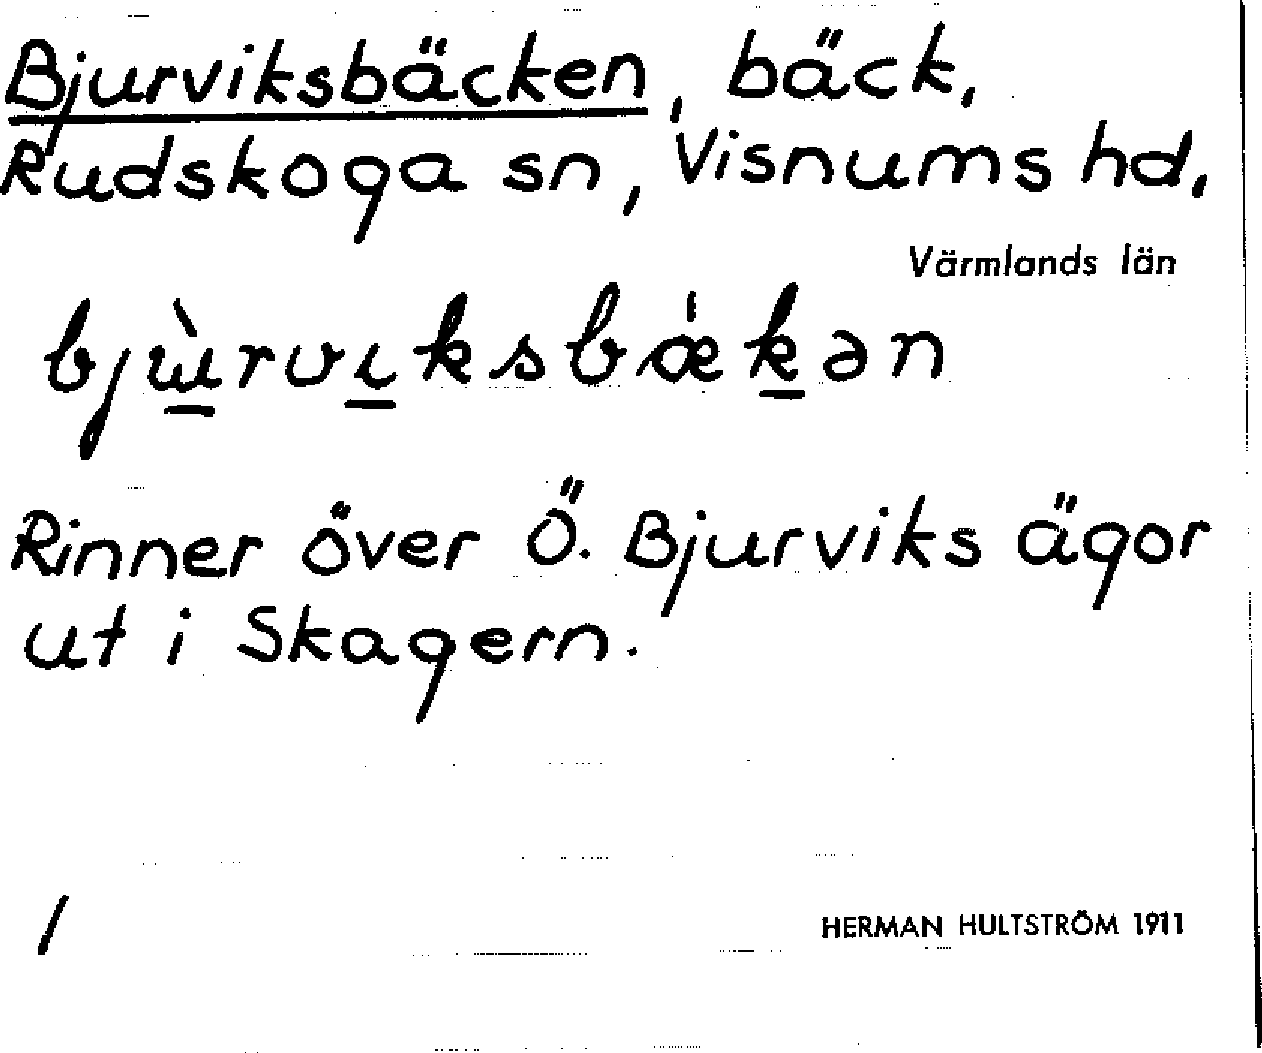 Bjurviksbäcken, bäck,
Rudskoga sn, Visnums hd,
Värmlands län
bjɯ̀rvıksbǽkən
Rinner över Ö. Bjurviks ägor
ut i Skagern.
/
HERMAN HULTSTRÖM 1911